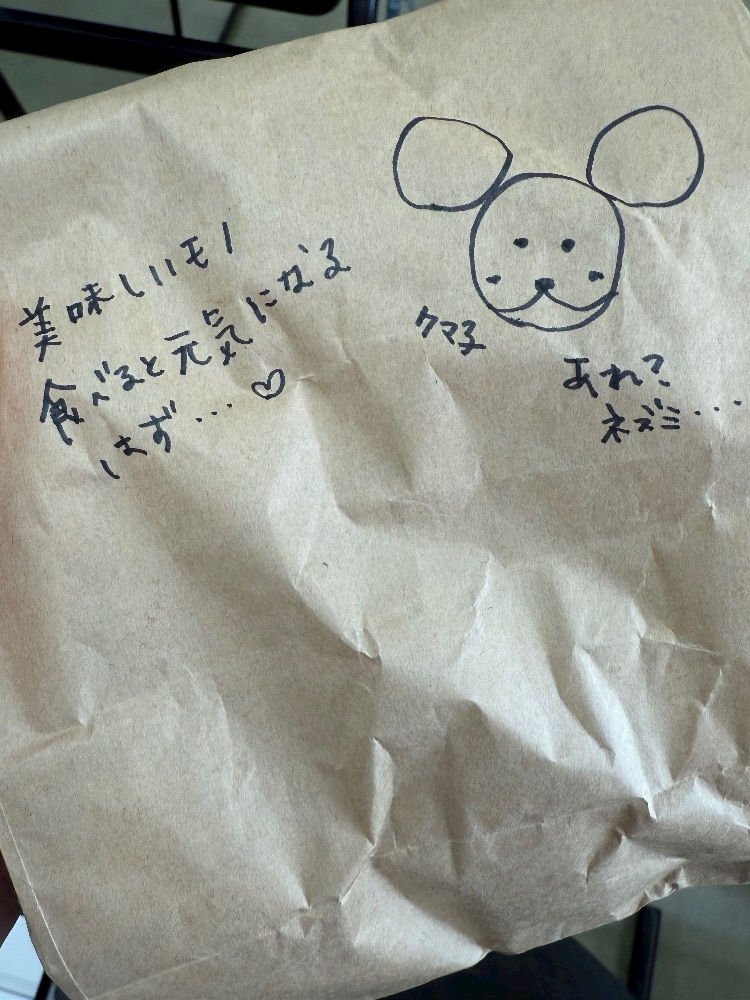 美味しいモノ
食べると元気になる
はず… ♡
クマる
あれ?
ネズミ…